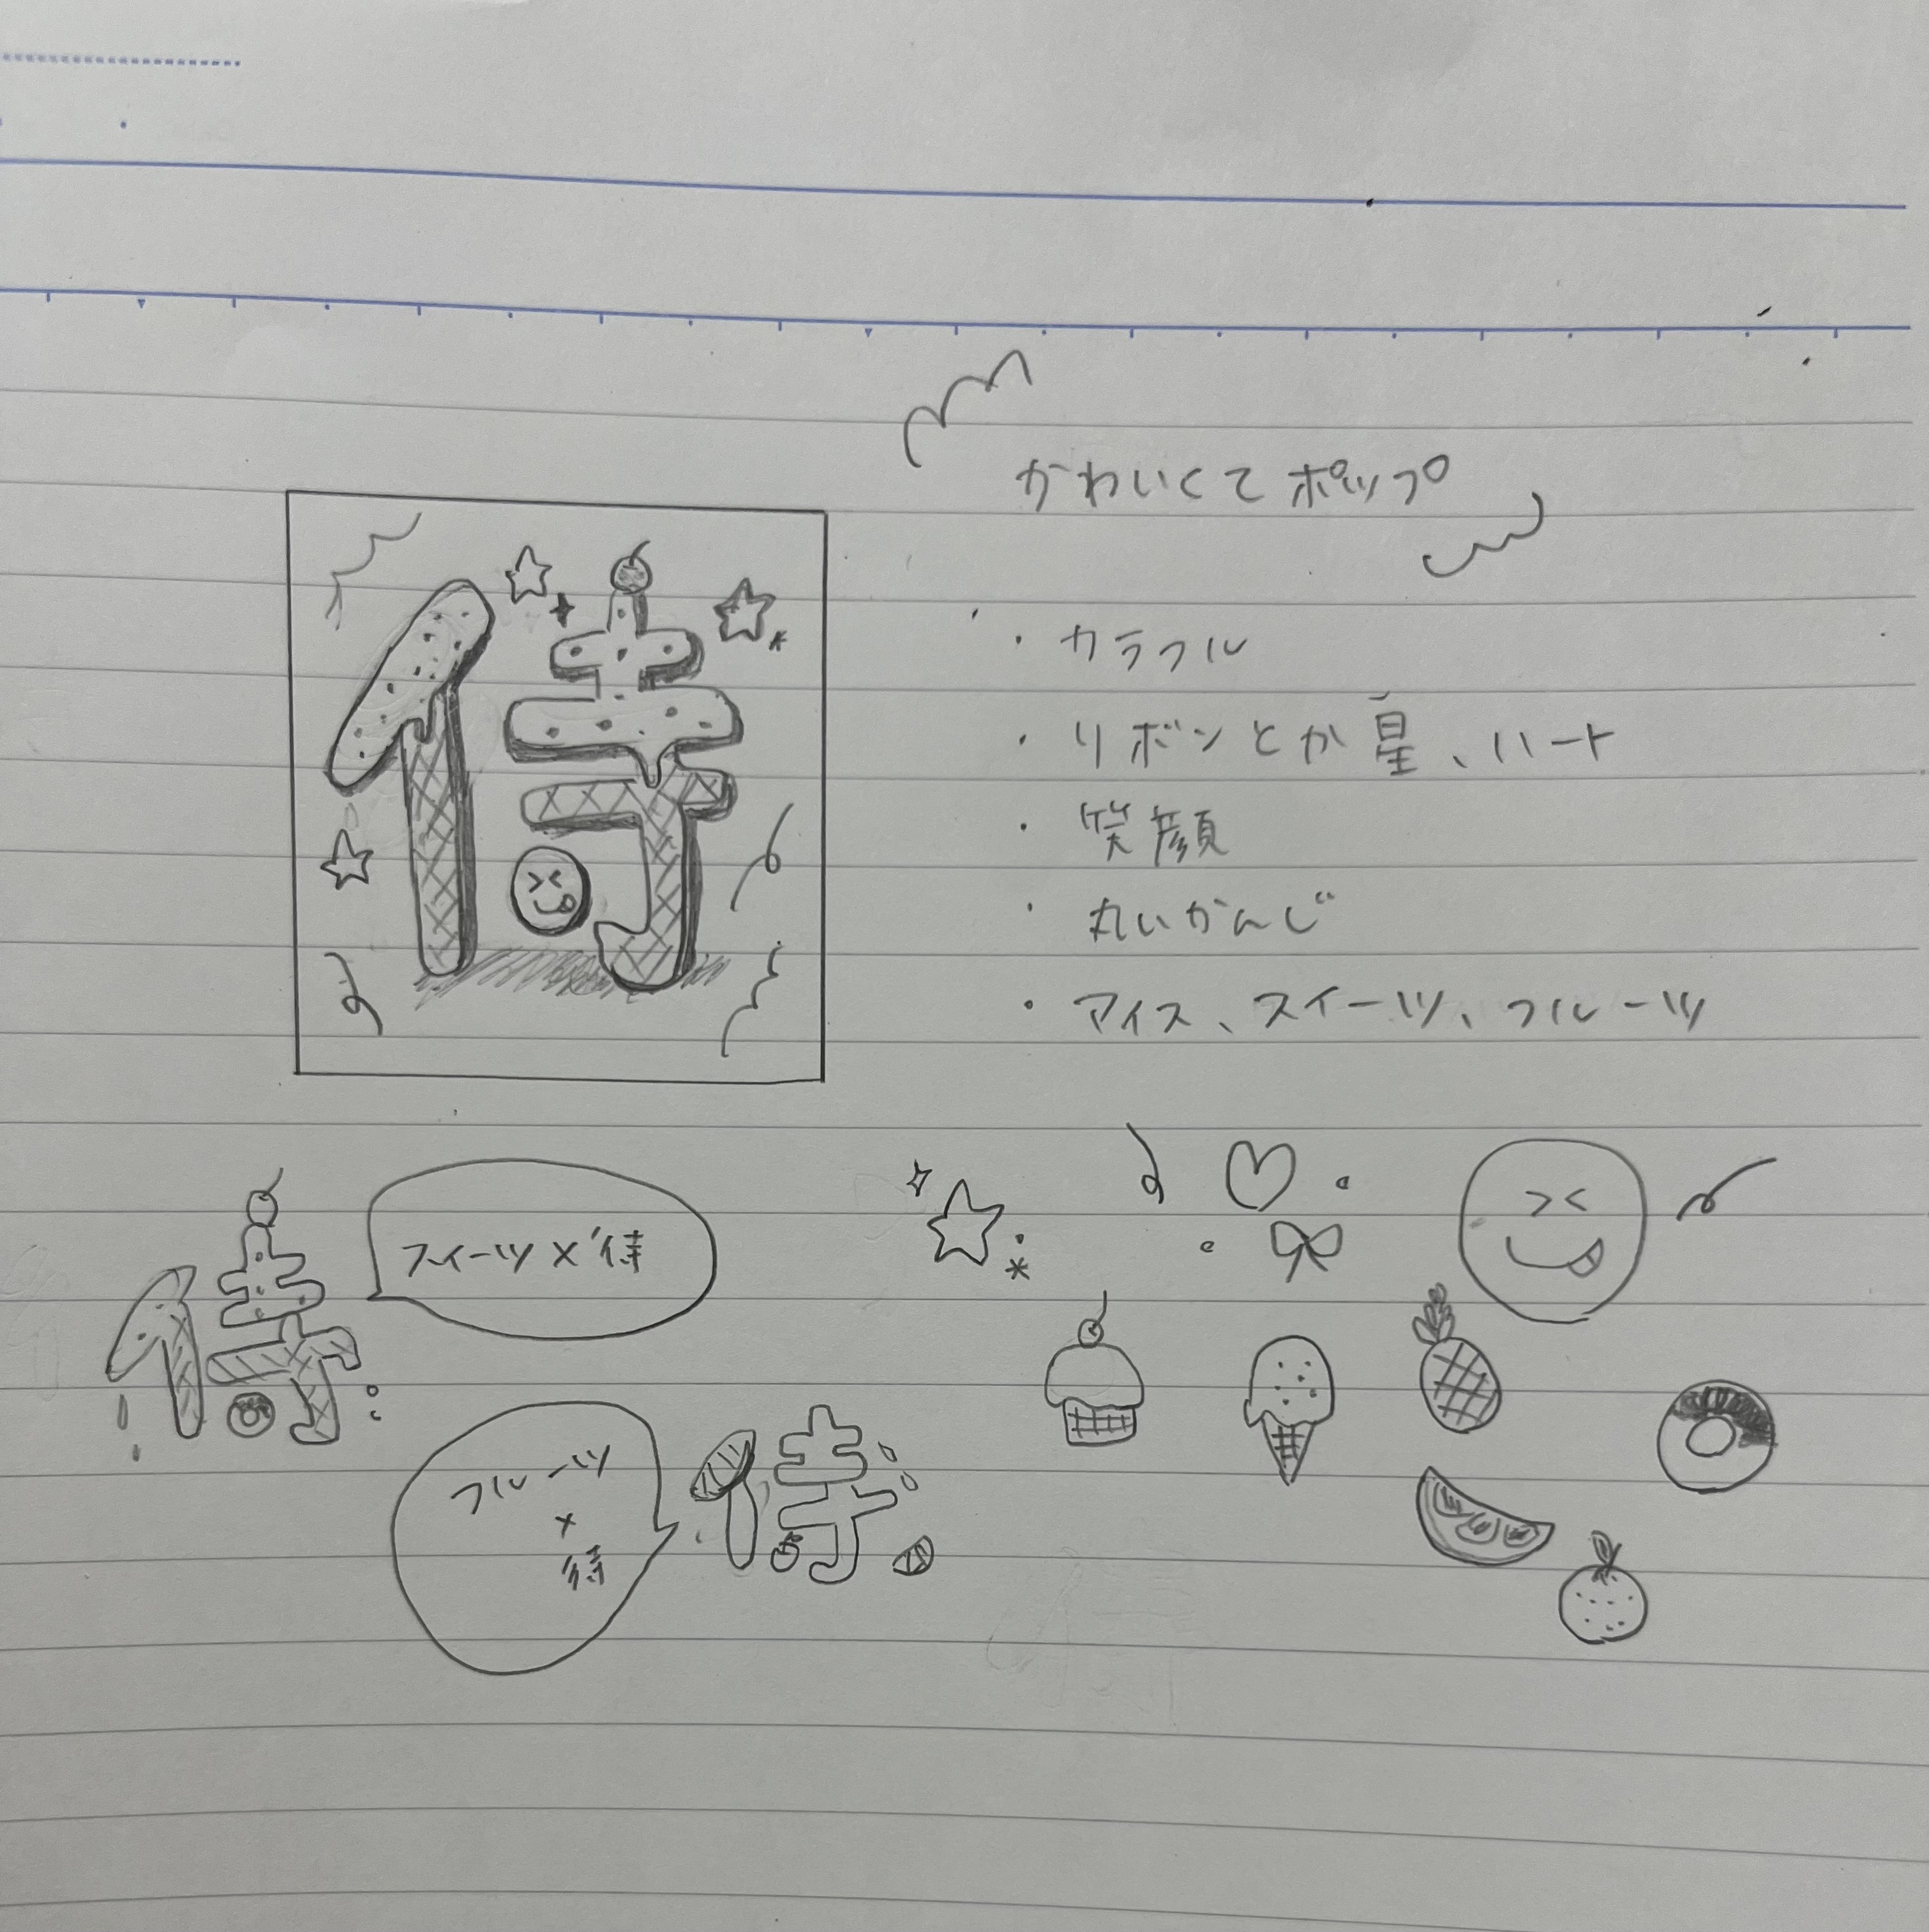 かわいくてポップ
・カラフル
・リボンとか星、ハート
・笑顔
・丸いかんじ
・アイス、スイーツ、フルーツ
侍
スイーツ×侍
フルーツ
×
侍